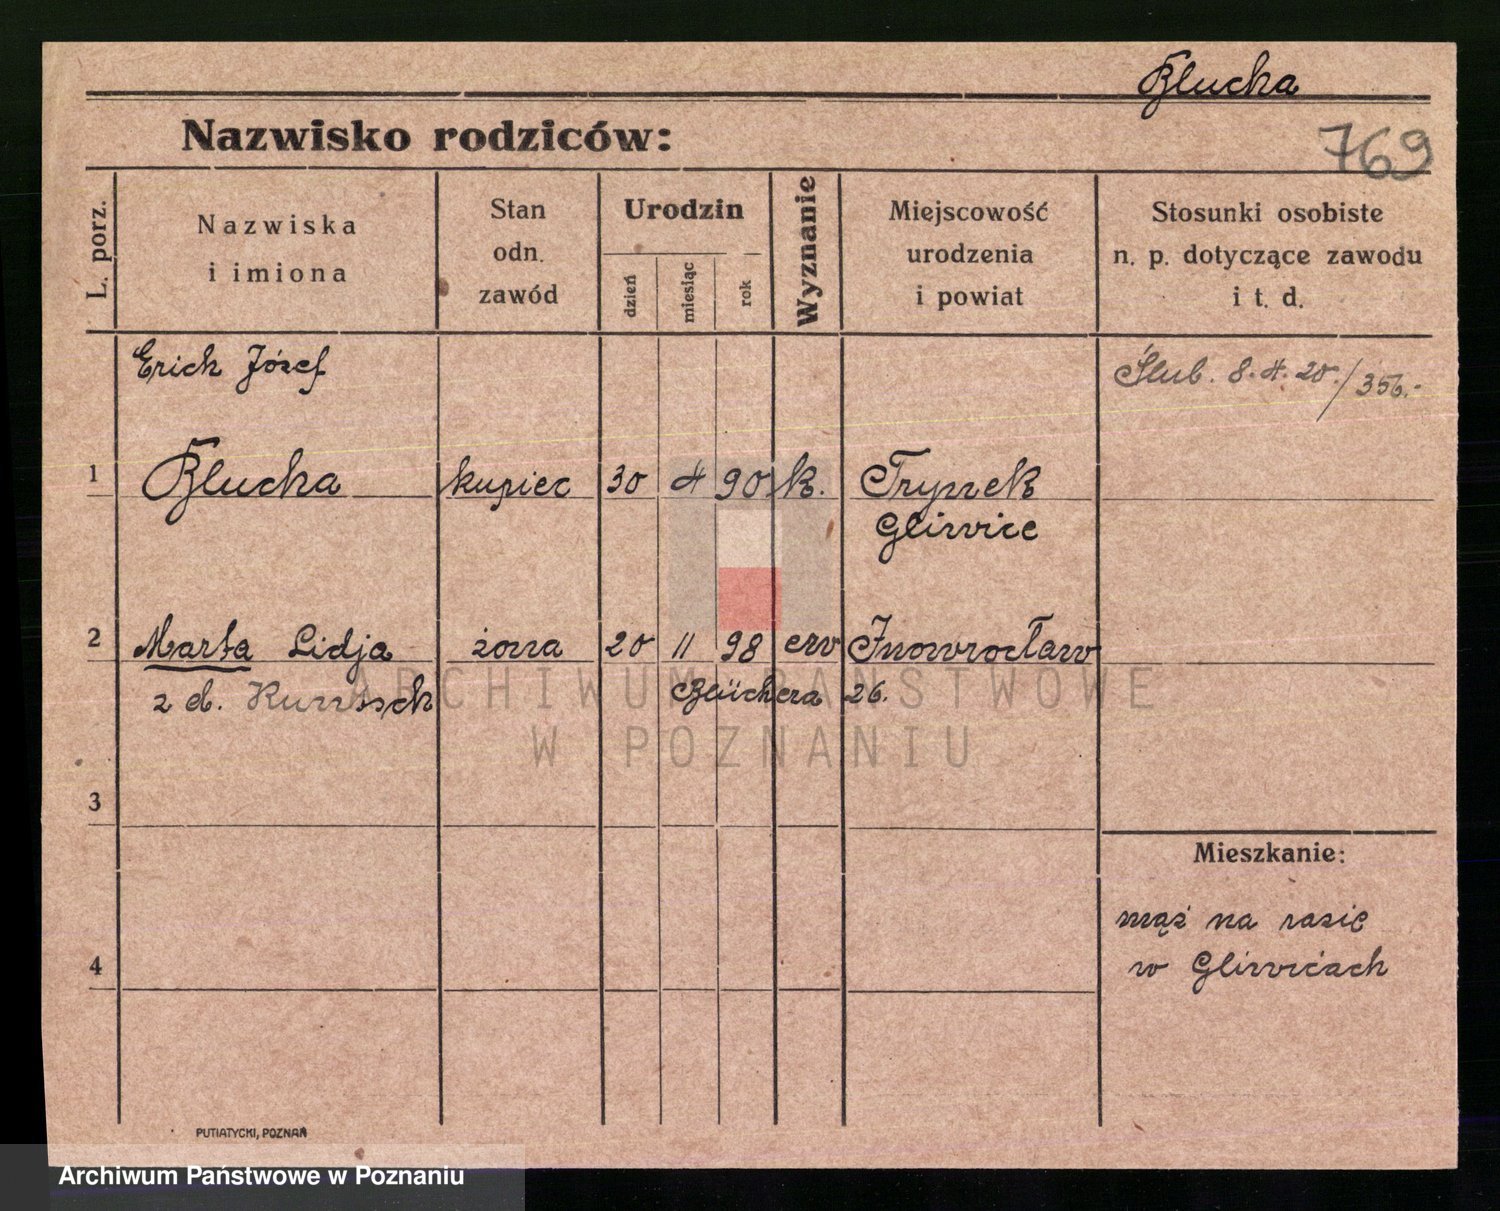 Blucha
Nazwisko rodziców:
769
L. porz.
Nazwiska
i imiona
Stan
odn.
zawód
Urodzin
dzień
miesiąc
rok
Wyznanie
Miejscowość
urodzenia
i powiat
Stosunki osobiste
n. p. dotyczące zawodu
i t. d.
Erich Józef
Ślub. 8. 4. 20./356.-
1 Blucha kupiec 30 4 90 k. Trynek
Gliwice
2 Marta Lidja żona 20 11 98 ew Inowrocław
z d.
26.
3
Mieszkanie:
mąż na razie
w Gliwicach
4
ARCHIWUM PAŃSTWOWE
W POZNANIU
PUTIATYCKI, POZNAŃ
Archiwum Państwowe w Poznaniu